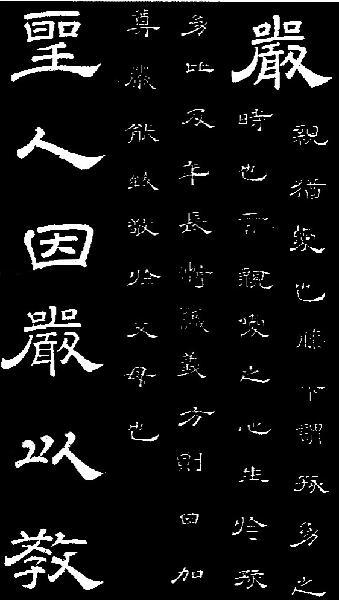 嚴
親猶愛也膝下謂孩幼之
時也言親愛之心生於孩
幼比及年長漸識義方則日加
尊嚴能致敬於父母也
聖人因嚴以教